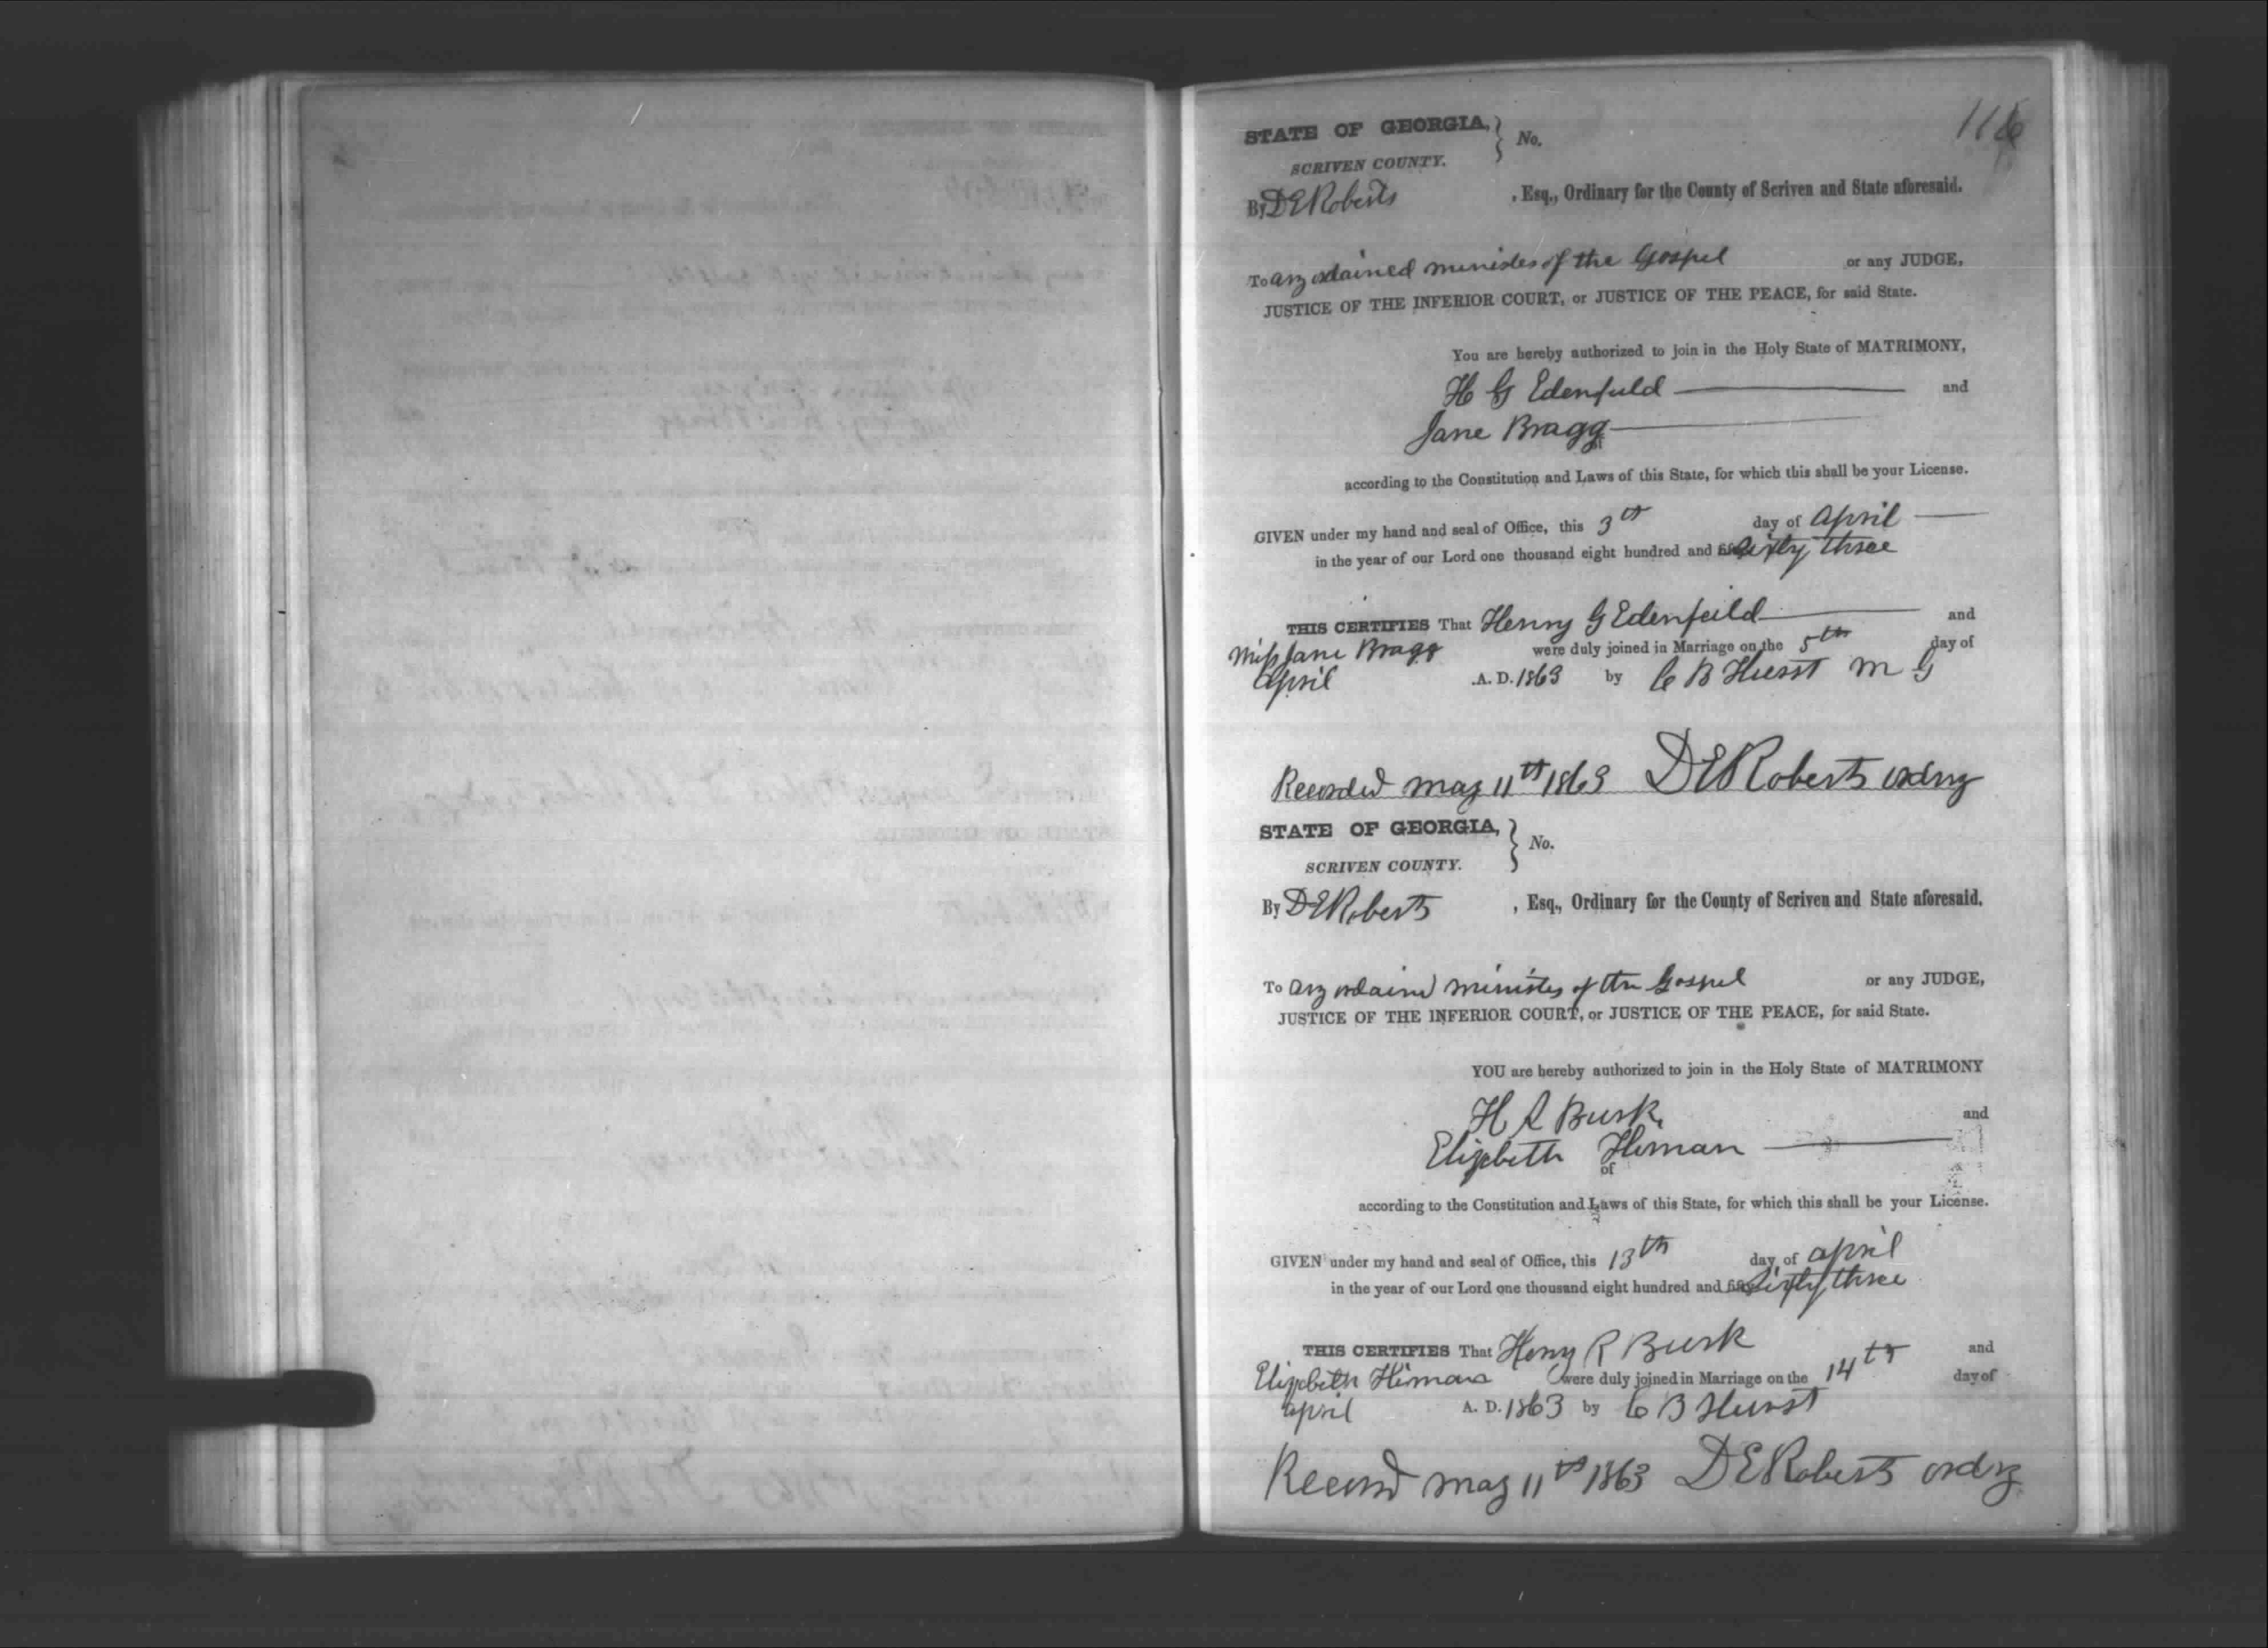 116
STATE OF GEORGIA, } No.
SCRIVEN COUNTY.
By D E Roberts , Esq., Ordinary for the County of Scriven and State aforesaid.
To any ordained minister of the Gospel or any JUDGE,
JUSTICE OF THE INFERIOR COURT, or JUSTICE OF THE PEACE, for said State.
You are hereby authorized to join in the Holy State of MATRIMONY,
H G Edenfield and
Jane Bragg
according to the Constitution and Laws of this State, for which this shall be your License.
GIVEN under my hand and seal of Office, this 3th day of April
in the year of our Lord one thousand eight hundred and sixty three
THIS CERTIFIES That Henry G Edenfeild and
Miss Jane Bragg were duly joined in Marriage on the 5th day of
April A. D. 1863 by C B Hurst M G
Recorded May 11th 1863 D E Roberts ordny
STATE OF GEORGIA, } No.
SCRIVEN COUNTY.
By D E Roberts , Esq., Ordinary for the County of Scriven and State aforesaid.
To any ordaind minister of the Gospel or any JUDGE,
JUSTICE OF THE INFERIOR COURT, or JUSTICE OF THE PEACE, for said State.
YOU are hereby authorized to join in the Holy State of MATRIMONY
H R Burk and
Elizabeth Himan
of
according to the Constitution and Laws of this State, for which this shall be your License.
GIVEN under my hand and seal of Office, this 13th day of april
in the year of our Lord one thousand eight hundred and sixty three
THIS CERTIFIES That Henry R Burk and
Elizabeth Himan were duly joined in Marriage on the 14th day of
april A. D. 1863 by C B Hurst
Record May 11th 1863 D E Roberts ordny